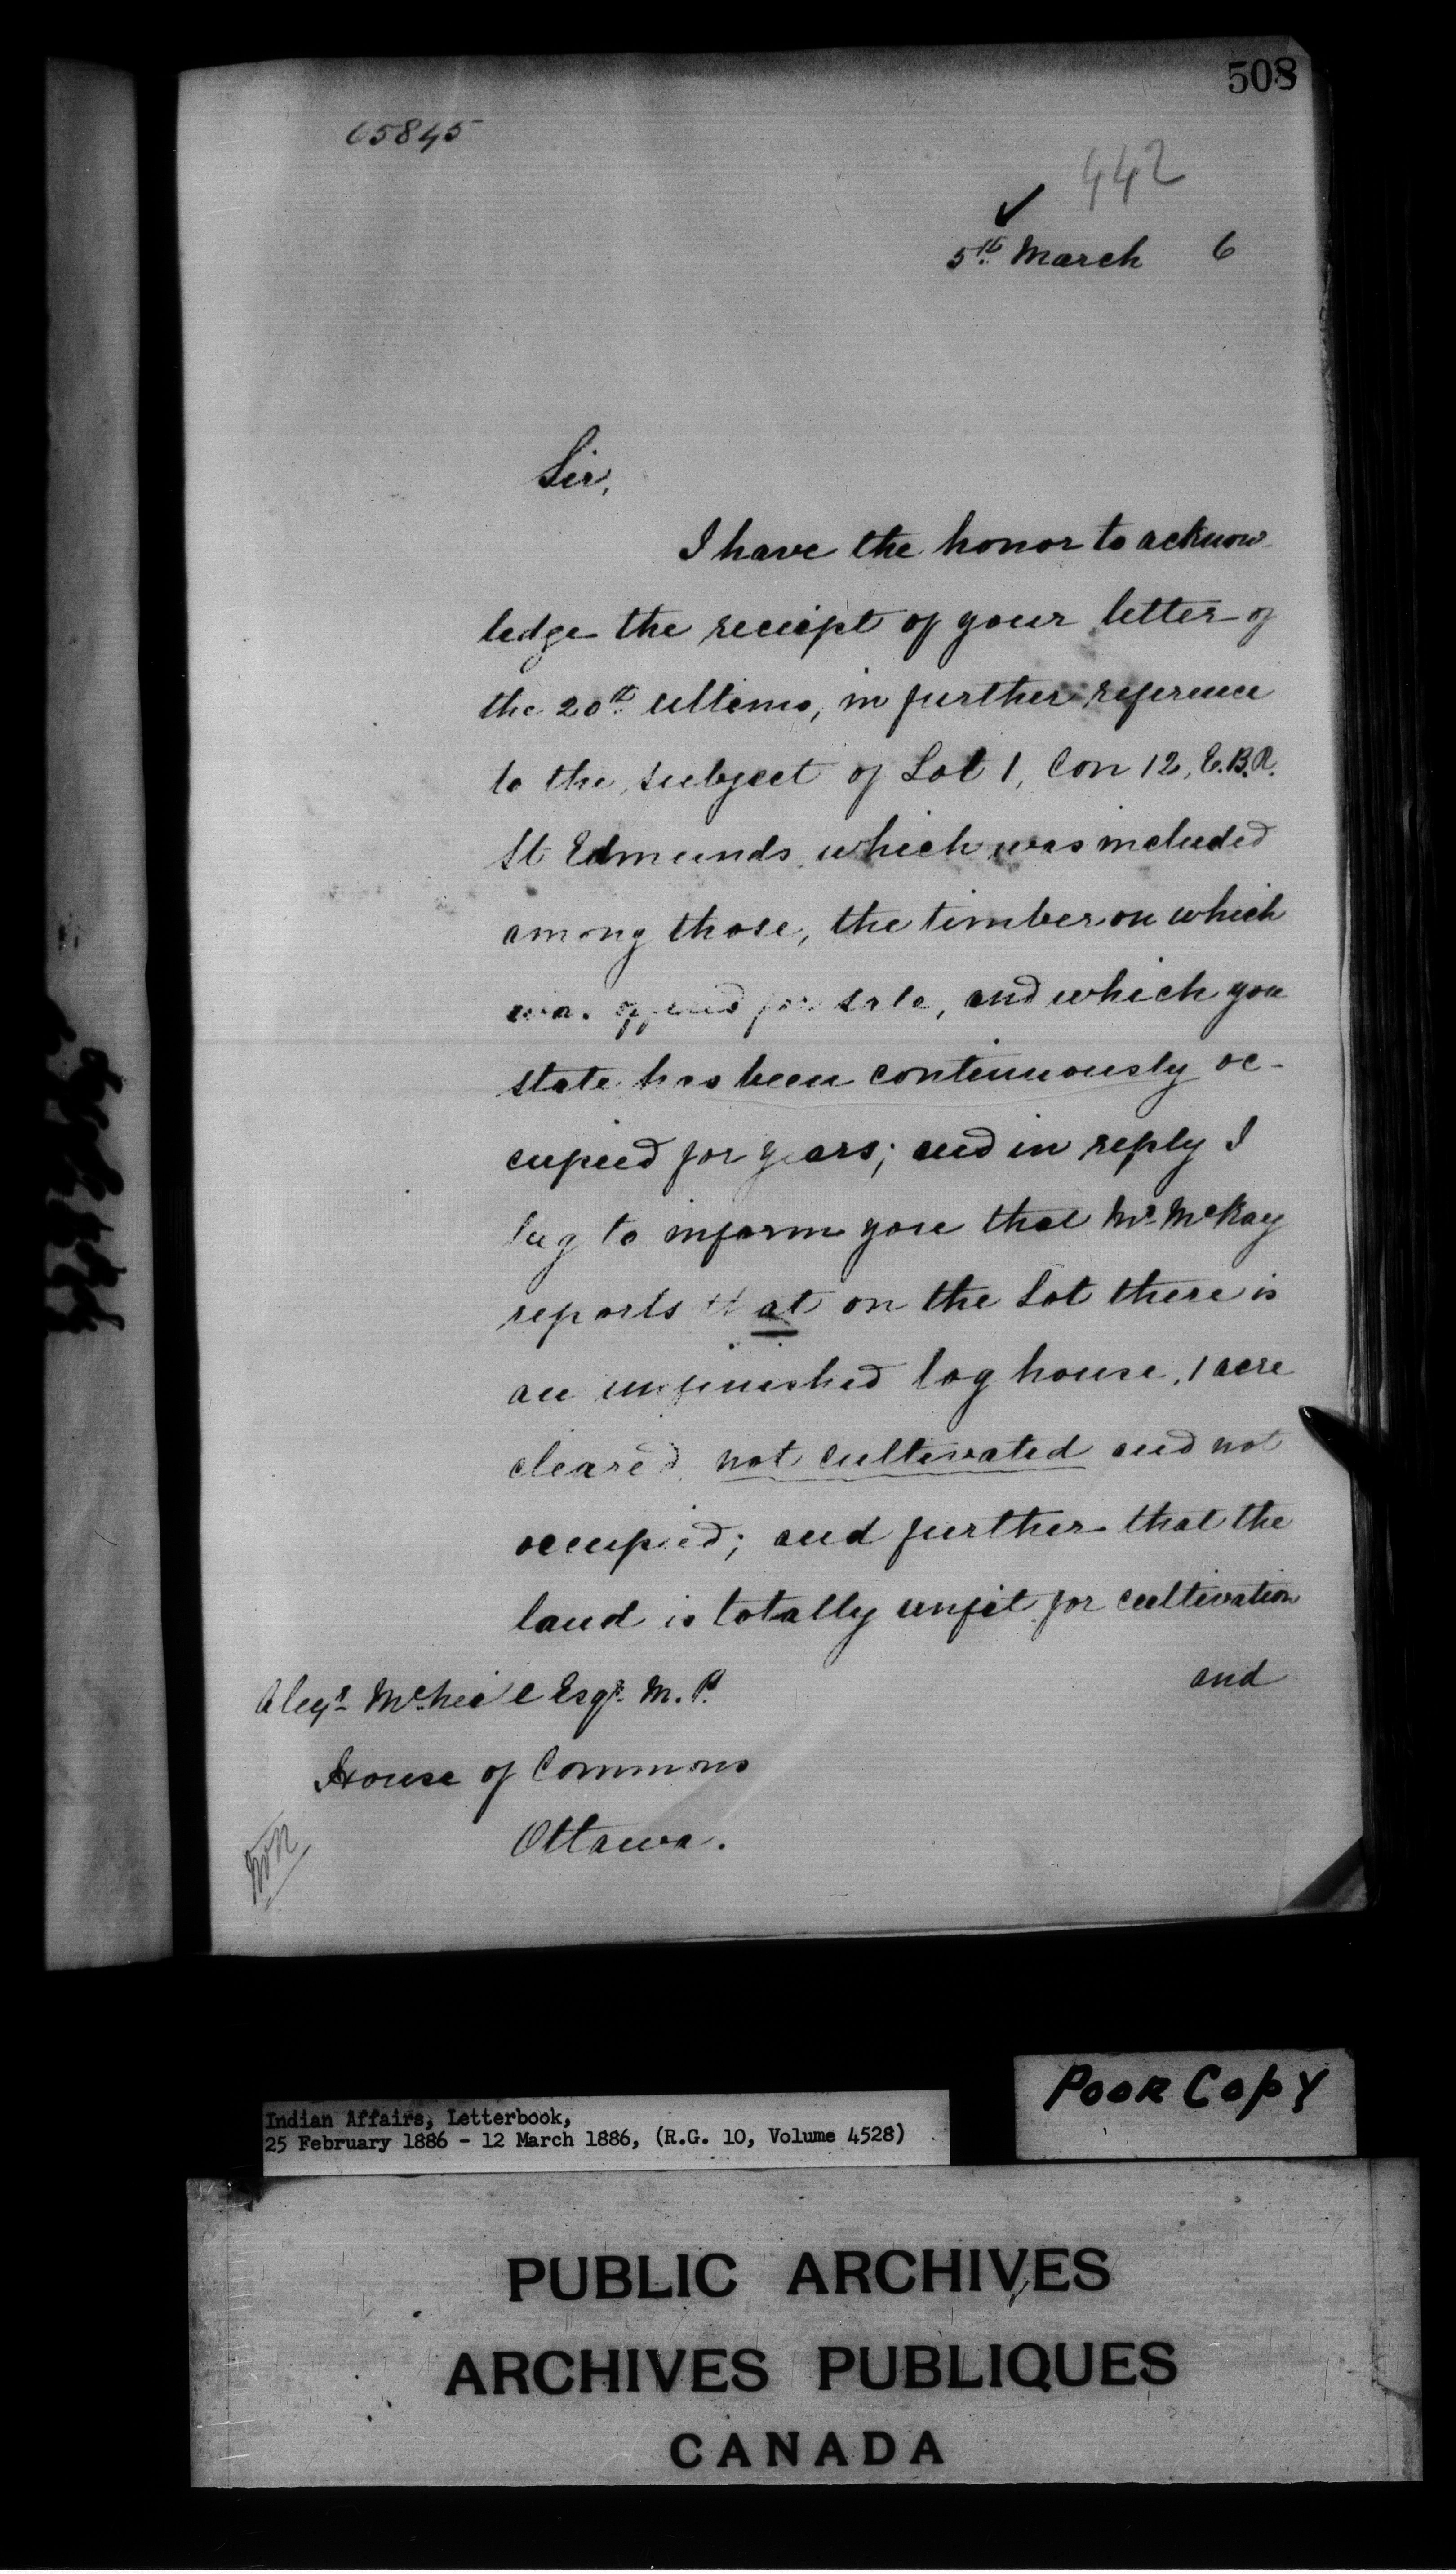 508
65845
442
5th March 6
Sir,
I have the honor to acknow
ledge the receipt of your letter of
the 20th ultimo, in further reference
to the subject of Lot 1, Con 12, E.B.R.
St Edmunds which was included
among those, the timber on which
was offered for sale, and which you
state has been continuously oc-
cupied for years; and in reply I
beg to inform you that Mr. McKay
reports that on the Lot there is
an unfinished log house, 1 acre
cleared, not cultivated and not
occupied; and further that the
land is totally unfit for cultivation
and
Alexr McNeile Esqr. M.P.
House of Commons
Ottawa.
Indian Affairs, Letterbook,
25 February 1886 - 12 March 1886, (R.G. 10, Volume 4528)
POOR COPY
PUBLIC ARCHIVES
ARCHIVES PUBLIQUES
CANADA